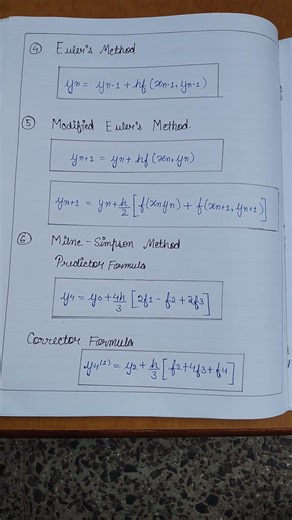 ④ Euler's Method
yn = yn-1 + hf (xn-1, yn-1)
⑤ Modified Euler's Method.
yn+1 = yn + hf (xn, yn)
yn+1 = yn + h/2 [f(xnyn) + f(xn+1, yn+1)]
⑥ Milne - Simpson Method
Predictor Formula
y4 = y0 + 4h/3 [2f1 - f2 + 2f3]
Corrector Formula
y4(1) = y2 + h/3 [f2 + 4f3 + f4]